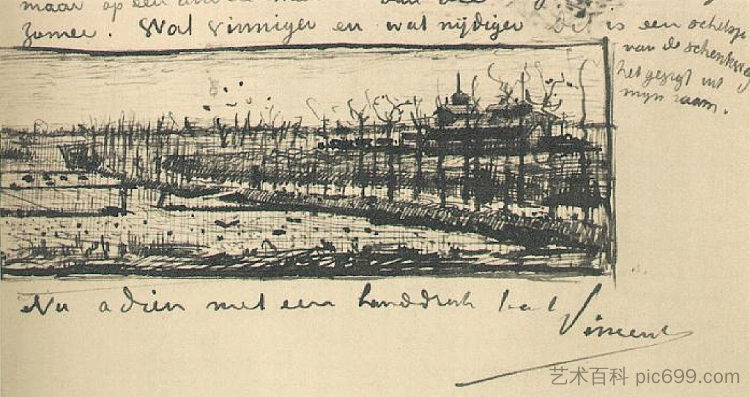 maar op een
zomer. Wat vinniger en wat nijdiger Dit is een schetsje
van de schenkweg
het gezigt uit
mijn raam.
Nu adieu met een handdruk
Vincent
艺术百科 pic699.com